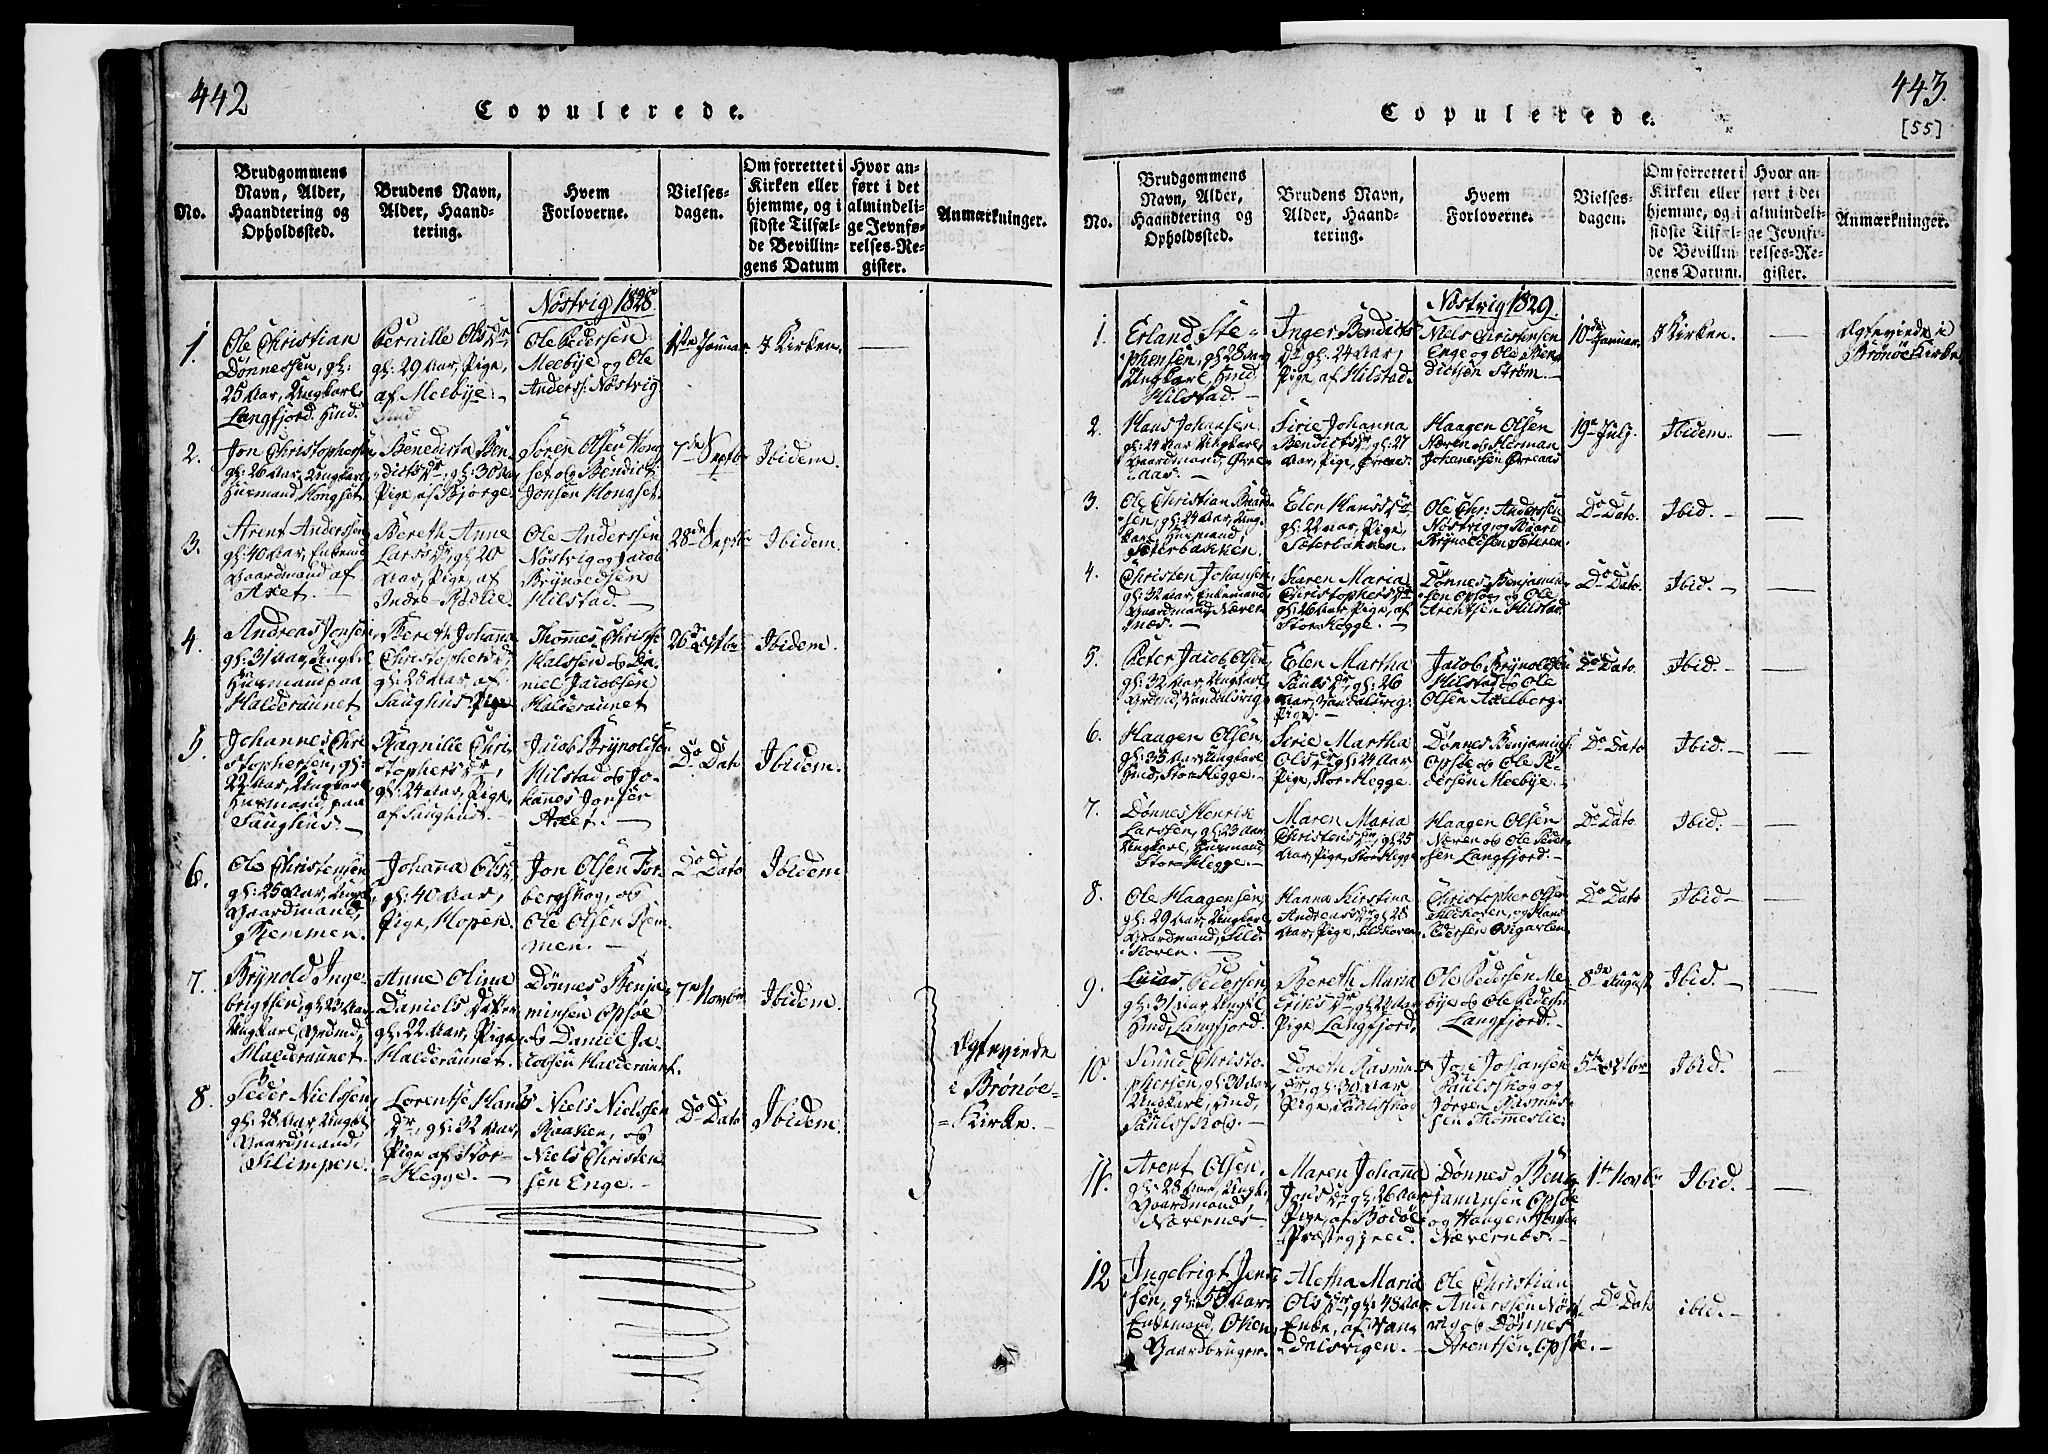 442
Copulerede.
No.
Brudgommens
Navn, Alder,
Haandtering og
Opholdssted.
Brudens Navn,
Alder, Haand-
tering.
Hvem
Forloverne.
Vielses-
dagen.
Om forrettet i
Kirken eller
hjemme, og i
sidste Tilfæl-
de Bevillin-
gens Datum
Hvor an-
ført i det
almindeli-
ge Jevnfø-
relses-Re-
gister.
Anmærkninger.
Nöstvig 1828
1.
Ole Christian
Dönnessen, gl:
25 Aar, Ungkarl,
Langfjord. Hmd.
Pernille Olsdr,
gl: 29 Aar, Pige,
af Melbÿe.
Ole Pedersen
Meebÿe og Ole
Anderss: Nöstvig
1ste Januar
I Kirken.
2.
Jon Christophersen
gl: 26 Aar, Ungkarl,
Huusmand, Hongset.
Benedicta Ben-
dictsdr, gl: 30 Aar
Pige, af Bjørge.
Sören Olsen Hong-
set og Bendict
Jonsen Hongset.
7de Septbr
Ibidem.
3.
Arent Anderssen
gl: 40 Aar, Enkemd
Gaardmand af
Axet.
Bereth Anne
Larsdr, gl: 20
Aar, Pige, af
Indre-
Ole Anderssen
Nöstvig og Jacob
Brÿnoldsen
Hilstad.
28de Septbr
Ibidem.
4.
Andreas Jonsen,
gl: 31 Aar, Ungkl
Huusmand paa
Halderaunet
Bereth Johanna
Christophersdr,
gl: 25 Aar, af
Saughus. Pige
Thomes Christ:
og Da-
niel Jacobsen
Halderaunet
26de Octbr
Ibidem.
5.
Johannes Chri-
stophersen, gl:
22 Aar, Ungkarl,
Huusmand, paa
Saughus.
Ragnille Chri-
stophersdr,
gl: 24 Aar, Pige,
af Saughus.
Jacob Brÿnoldsen
Hilstad og Jo-
hannes Jonsen
Axet.
Do Dato
Ibidem.
6.
Ole Christensen
gl: 25 Aar, Ungkl,
Gaardmand,
Remmen.
Johanna Olsdr,
gl: 40 Aar,
Pige, Hopen.
Jon Olsen Tor-
bergskog, og
Ole Olsen Rem-
men.
Do Dato
Ibidem.
7.
Brÿnold Inge-
brigtsen, gl: 23 Aar
Ungkarl, Grdmd,
Halderaunet.
Anne Olina
Daniels Datter
gl: 22 Aar, Pige
Halderaunet.
Dönnes Benja-
minsen Opsöe
og Daniel Ja-
cobsen Halderaunet.
7de Novbr
Ibidem.
8.
Peder Nielssen,
gl: 28 Aar, Ungkl
Gaardmand,
Klimpen.
Lorentse Hans
Dr, gl: 32 Aar,
Pige af Stor-
Hegge.
Niels Nielssen
Raaken, og
Niels Christen-
sen Enge.
Do Dato
Ibidem.
Ægteviede
i Brönöe
Kirke.
443.
[55]
Copulerede.
No.
Brudgommens
Navn, Alder,
Haandtering og
Opholdssted.
Brudens Navn,
Alder, Haand-
tering.
Hvem
Forloverne.
Vielses-
dagen.
Om forrettet i
Kirken eller
hjemme, og i
sidste Tilfæl-
de Bevillin-
gens Datum.
Hvor an-
ført i det
almindeli-
ge Jevnfø-
relses-Re-
gister.
Anmærkninger.
Nöstvig 1829.
1.
Erland Ste-
phensen, gl: 28 Aar
Ungkarl, Hmd,
Hilstad.
Inger Bendicts
Dr gl: 24 Aar,
Pige, af Hilstad.
Niels Christensen
Enge og Ole Ben-
dictsen Ström.
10de Januar.
I Kirken.
Ægteviede i
Brönöe Kirke
2.
Hans Johansen
gl: 24 Aar Ungkarl,
Gaardmand, Øre-
aas.
Sirie Johanna
Bendictsdr, gl: 27
Aar, Pige,
Haagen Olsen
Næren og Herman
Johanessen Øreaas
19de Julÿ.
Ibidem.
3.
Ole Christian
gl: 24 Aar, Ung-
karl, Huusmand,
Sæterbakken.
Elen Hansdr
gl: 22 Aar, Pige,
Sæterbakken.
Ole Chr: Anderssen
Nöstvig, og
Brÿnoldsen Sæteren.
Do Dato.
Ibid.
4.
Christen Johansen,
gl: 32 Aar, Enkemand
Gaardmand, Næver-
næs.
Karen Maria
Christophersdr
gl: 26 Aar, Pige, af
Stor-Hegge.
Dönnes Benjamin-
sen Opsöe, og Ole
Arentsen Hilstad
Do Dato.
Ibid.
5.
Peter Jacob Olsen,
gl: 32 Aar, Ungkarl,
Grdmd, Vandalsvig
Elen Martha
Paulsdr, gl: 26
Aar, Vandalsvig
Pige.
Jacob Brÿnoldsen
Hilstad og Ole
Olsen Axelberg.
Do Dato
Ibid.
6.
Haagen Olsen
gl: 35 Aar Ungkarl,
Hmd, Stor-Hegge.
Sirie Martha
Olsdr gl: 24 Aar
Pige, Stor-Hegge.
Dönnes Benjamins:
Opsöe og Ole Pe-
dersen Meebÿe.
Do Dato
Ibid.
7.
Dönnes Henrik
Larssen, gl: 23 Aar,
Ungkarl, Huusmand,
Stor-Hegge.
Maren Maria
Christensdr, gl: 25
Aar, Pige, Stor-Hegge
Haagen Olsen
Næren og Ole Peder-
sen Langfjord.
Do Dato
Ibid:
8.
Ole Haagensen,
gl: 29 Aar, Ungkarl,
Gaardmand, Sild-
hoven.
Hanna Kirstina
Andreasdr gl: 28
Aar, Pige, Sildhoven
Christopher Olsen
Sildhoven, og Hans
Pedersen
Do Dato
Ibid
9.
Lucas Pedersen,
gl: 31 Aar, Ungkl,
Hmd, Langfjord.
Bereth Maria
Eriksdr, gl: 24 Aar
Pige Langfjord,
Ole Pedersen Me-
bÿe og Ole Peders:
Langfjord.
8de August
Ibid.
10.
Knud Christo-
phersen, gl: 30 Aar
Ungkarl, Hmd,
Paulsskog.
Doreth Rasmus
Dr, gl: 30 Aar,
Pige, Paulsskog
Joes Johansen
Paulsskog og
Jörgen Rasmus-
sen Thomeslie.
5te Octbr
Ibid.
11.
Arent Olsen,
gl: 28 Aar, Ungk:
Gaardmand,
Nævernæs
Maren Johanna
Jonsdr gl: 26 Aar
Pige, af Bodöe
Præstegjeld.
Dönnes Ben-
jaminsen Opsöe
og Haagen
Nævernæs.
1te Novbr
Ibid.
12
Ingebrigt Jen-
sen, gl: 53 Aar
Enkemand,
Gaardbruger.
Aletha Maria
Olsdr, gl: 48 Aar
Enke, af Van-
dalsvigen.
Ole Christian
Anderssen Nöst-
vig og Dönnes
Arentsen, Opsöe.
Do Dato
ibid.